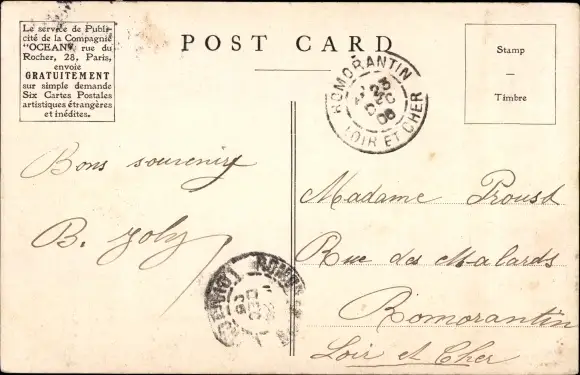 Le service de Publi-
cité de la Compagnie
"OCEAN", rue du
Rocher, 28, Paris,
envoie
GRATUITEMENT
sur simple demande
Six Cartes Postales
artistiques étrangères
et inédites.
POST CARD
Stamp
Timbre
ROMORANTIN
LOIR ET CHER
Bons souvenirs
B. Joly
Madame Proust
Rue des Malards
Romorantin
Loir et Cher